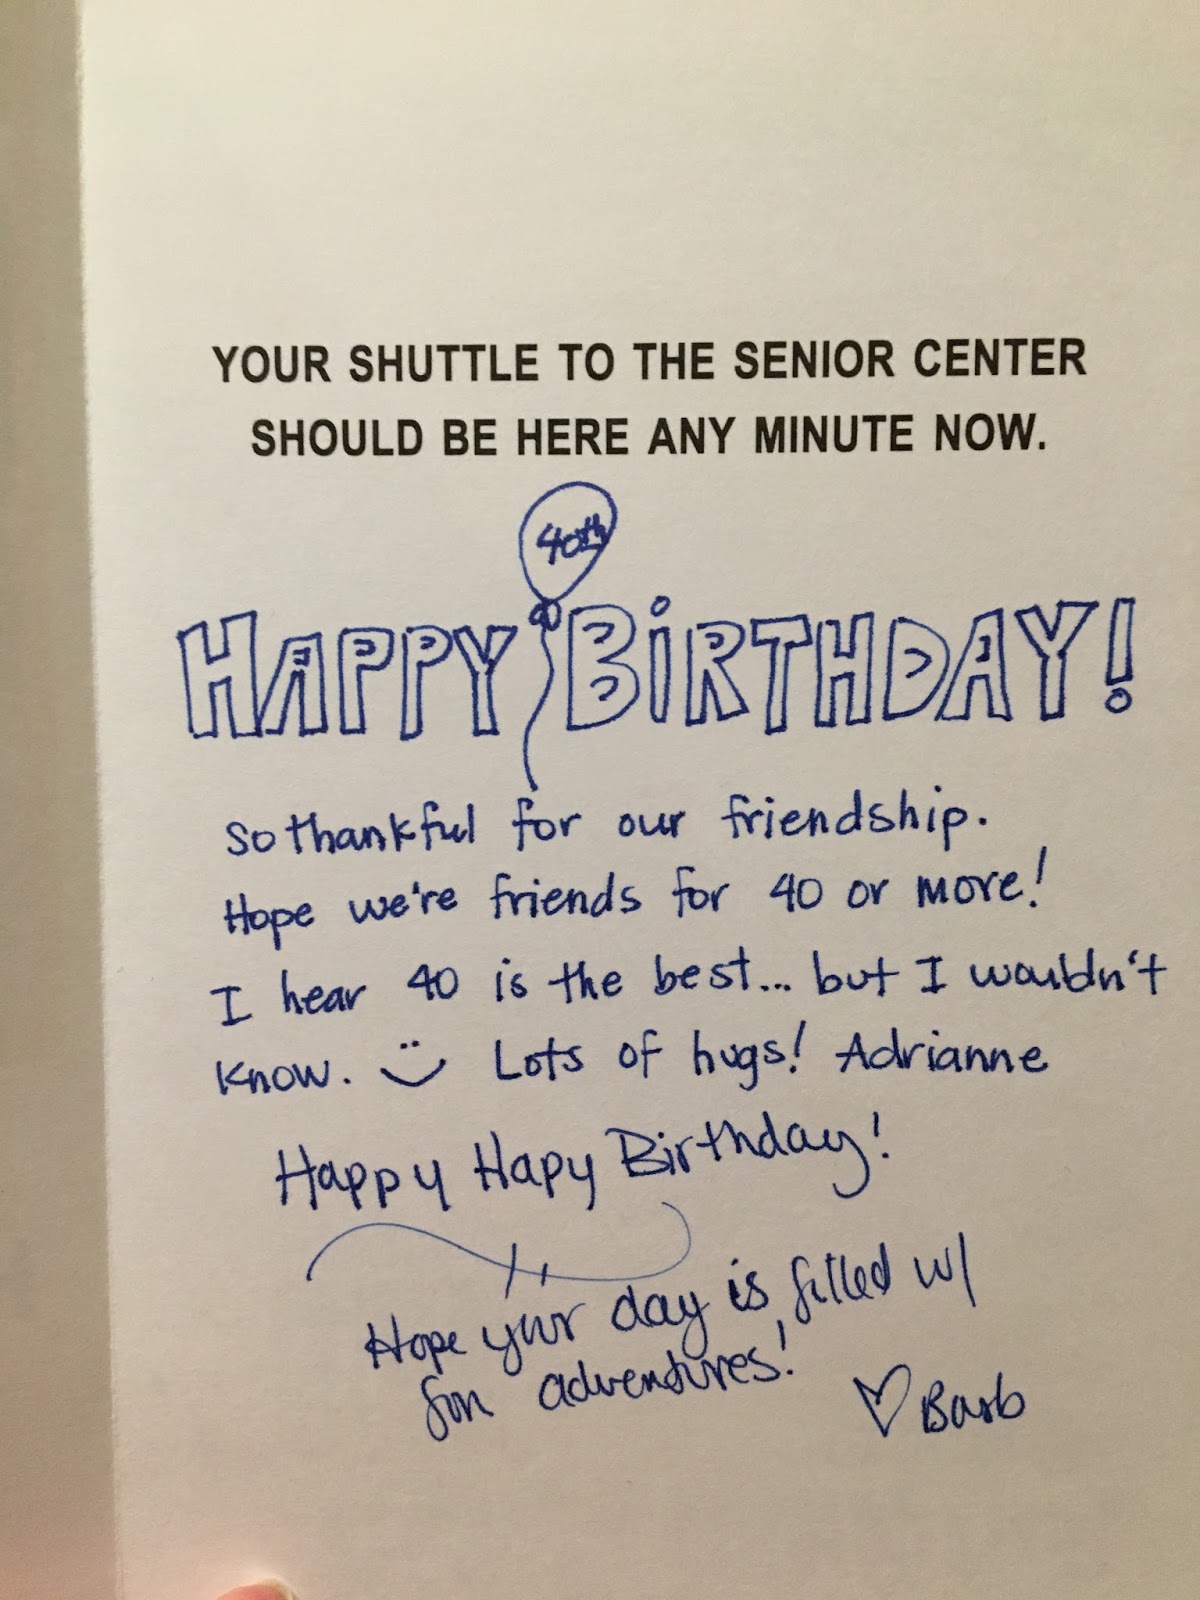 YOUR SHUTTLE TO THE SENIOR CENTER
SHOULD BE HERE ANY MINUTE NOW.
40th
HAPPY BiRTHDAY!
So thankful for our friendship.
Hope we're friends for 40 or more!
I hear 40 is the best... but I wouldn't
know. Lots of hugs! Adrianne
Happy Hapy Birthday!
Hope your day is filled w/
fun adventures!
♡ Barb